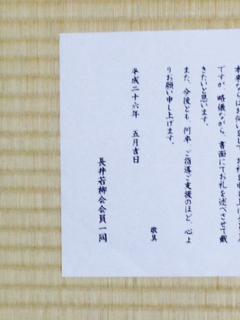 ですが、略儀ながら、書面にてお礼を述べさせて戴
きたいと思います。
また、今後とも、何卒、ご指導ご支援のほど、心よ
りお願い申し上げます。
敬具
平成二十六年 五月吉日
長井若獅会会員一同